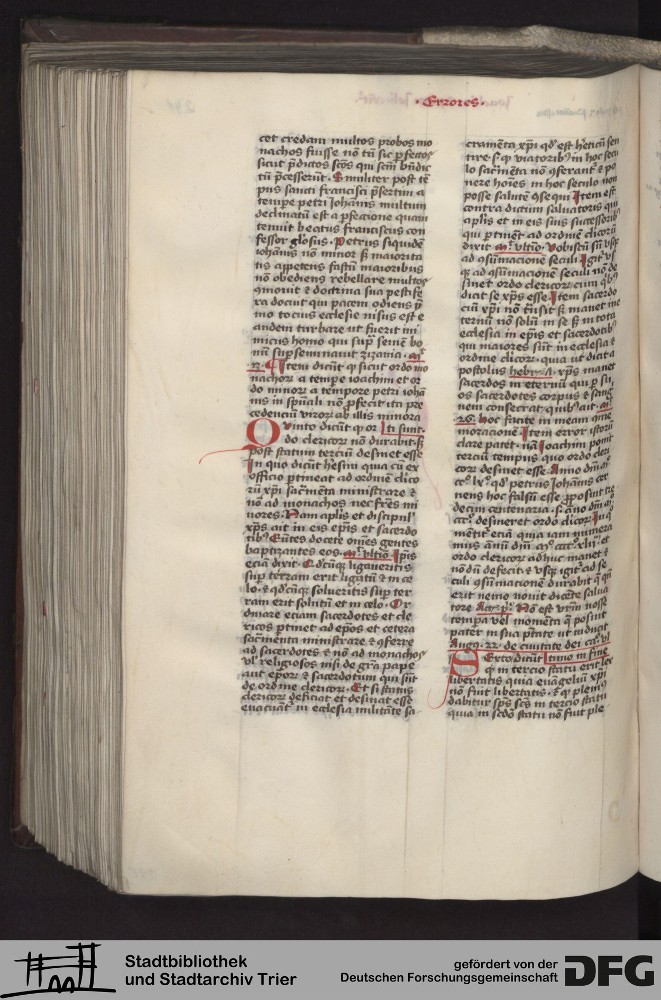 · Errores ·
cet credam multos probos mo
nachos fuisse nō tn̄ sic ꝑfectos
sicut p̄dictos scōs qui scm̄ bn̄dic
tū p̄cesserūt · Similiter post tē
pus sancti francisci p̄sertim a
tempe petri iohānis multum
declinatū est a ꝑfectione quam
tenuit beatus franciscus con
fessor gl̓osus · Petrus siquidē
iohānis nō minor sꝫ maiorita
tis appetens fastū maioribus
nō obediens rebellare multos
docuit qui pacem odiens
mo tocius ecclesie nisus est e
andem turbare ut fuerit ini
micus homo qui suꝑ semē bo
nū suꝑseminauit zizania · mᵗ
Item dicūt ꝙ sicut ordo mo
nachoꝝ a tempe ioachim et or
do minoꝝ a tempore petri iohā
nis in spūali nō ꝓfecit ita pre
cedenciū viroꝝ ab illis minora
Quinto dicūt ꝙ or lti sunt ·
do clericoꝝ nō durabit ·
post statum terciū desinet esse
In quo dicūt hesim quia cū ex
officio ꝑtineat ad ordinē clico
rū xp̄i sacr̄menta ministrare ⁊
nō ad monachos nec fr̄es mi
nores · Nam aplīs et discipul'
xp̄s ait in eis ep̄is et sacerdo
tibꝰ Eūtes docete om̄es gentes
baptizantes eos · mᵗ vltīo · Ip̄is
eciā dixit · Qd̓cūqꝫ ligaueritis
suꝑ terram erit ligatū ⁊ in ce
lo · ⁊ qd̓cūqꝫ solueritis suꝑ ter
ram erit solutū et in celo · Or
dinare eciam sacerdotes et cle
ricos ꝑtinet ad ep̄os et cetera
sacr̄menta ministrare ⁊ ꝯferre
ad sacerdotes ⁊ nō ad monachos
vl' religiosos nisi de gr̄a pape
aut ep̄oꝝ ⁊ sacerdotum qui sūt
de ordine clericoꝝ · Et si status
clericoꝝ deficiat et desinat esse
euacuāt' in ecclesia militāte sa
cramēta xp̄i qd̓ est hēticū sen
tire · s · ꝙ viatoribꝰ in hoc secu
lo sacr̄menta nō ꝯferant' ⁊ po
nere hoīes in hoc seculo non
posse salutē ꝯsequi Item est
contra dictum saluatoris qui
aplīs et in eis suis successoribꝰ
qui ꝑtinēt ad ordinē clicoꝝ
dixit mᵗ vltīo · Vobiscū sū vsqꝫ
ad ꝯsūmacionē seculi · Igit' vs
qꝫ ad ꝯsūmacionē seculi nō de
sinet ordo clericoꝝ cum qibꝰ
dicit se xp̄s esse · Item sacerdo
ciū xp̄i nō t̄nsit sꝫ manet in e
ternū nō solū in se sꝫ in tota
ecclesia in ep̄is et sacerdotibꝰ
qui maiores sūt in ecclesia ⁊
ordine clicoꝝ · quia ut dicit a
postolus hebr̄ · xp̄s manet
sacerdos in eternū qui ꝑ su
os sacerdotes corpus ⁊ sang
nem consecrat · quibꝰ ait · mᵗ
26 · hoc facite in meam ꝯme
moracionē · Item error istoꝝ
clare patet · nā Ioachim ponit
terciū tempus quo ordo cleri
coꝝ desinet esse · Anno dm̄
cc° lx° qd̓ petrus iohānis cer
nens hoc falsū esse ꝓposuit tre
decim centenaria · s · āno dm̄
ccc° desineret ordo clicoꝝ · In q̄
mētit' eciā quia iam numera
mus annū dm̄ m° ccc° xlii° · et
ordo clericoꝝ adhuc manet ⁊
nō dū defecit ⁊ vsqꝫ igit' ad se
culi ꝯsūmacionē durabit
erit nemo nouit dicēte salua
tore Act · pᵒ · Nō est vr̄m nosse
tempa vel momēta q̄ posuit
pater in sua ptāte ut inducit
Augꝰ · 22 · de ciuitate dei ca° vl
Sexto dicūt ltimo in fine
ꝙ in tercio statu erit lex
libertatis quia euāgeliū xp̄i
nō fuit libertatis · ⁊ ꝙ pleniꝰ
dabitur sp̄s scs̄ in tercio statu
quia in scdō statu nō fuit ple
Stadtbibliothek
und Stadtarchiv Trier
gefördert von der
Deutschen Forschungsgemeinschaft
DFG